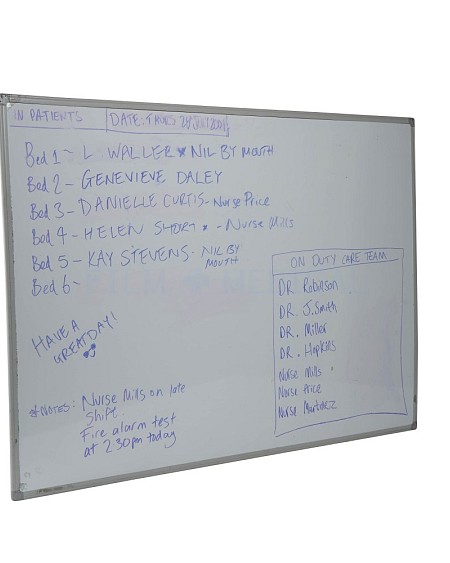 IN PATIENTS
DATE: THURS 28 JULY 2001
Bed 1 - L WALLER * NIL BY MOUTH
Bed 2 - GENEVIEVE DALEY
Bed 3 - DANIELLE CURTIS - Nurse Price
Bed 4 - HELEN SHORT * - Nurse Mills
Bed 5 - KAY STEVENS - NIL BY
MOUTH
Bed 6 -
HAVE A
GREAT DAY!
* NOTES: Nurse Mills on late
shift
Fire alarm test
at 2.30pm today
ON DUTY CARE TEAM
DR Robinson
DR. J. Smith
DR. Miller
DR. Hopkins
Nurse Mills
Nurse Price
Nurse Martinez